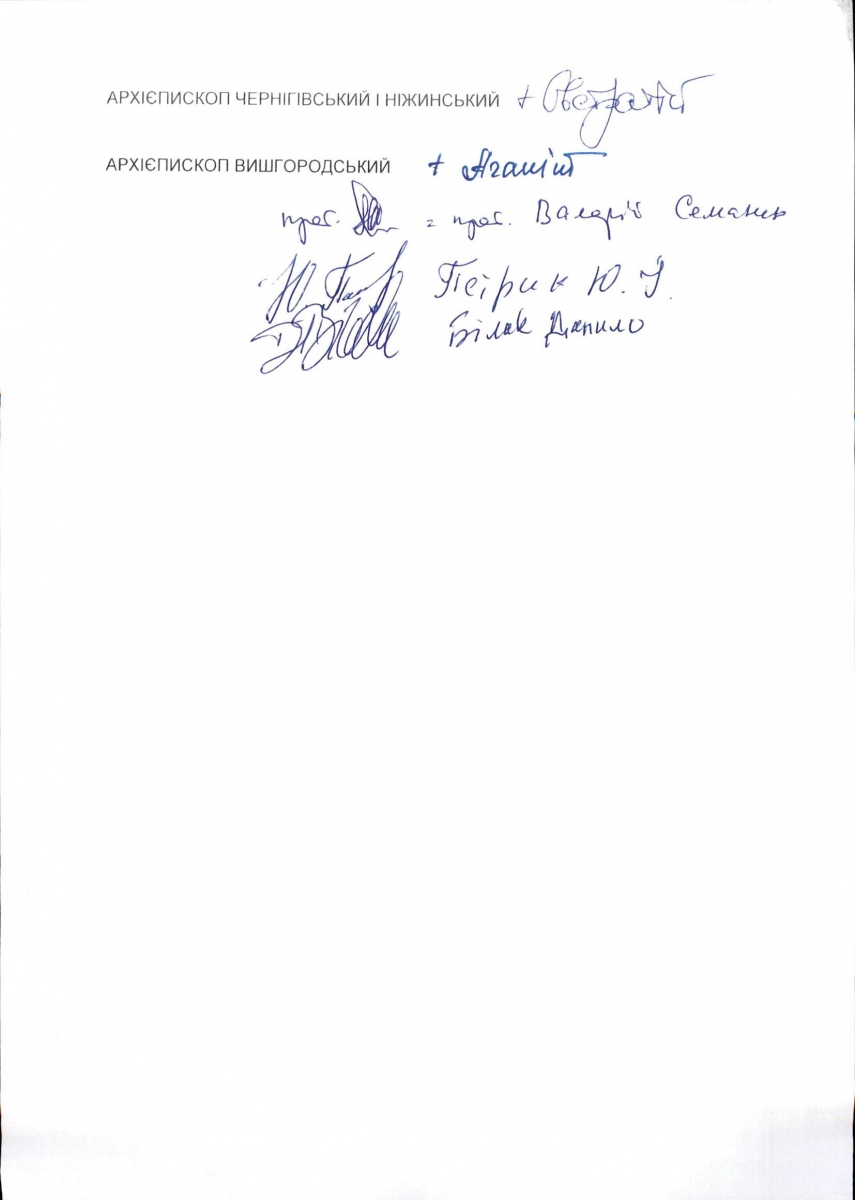 АРХІЄПИСКОП ЧЕРНІГІВСЬКИЙ І НІЖИНСЬКИЙ + Євстратій
АРХІЄПИСКОП ВИШГОРОДСЬКИЙ + Агапіт
прот. прот. Валерій Семанцо
Ю. Петрик Ю. І.
Білак Данило